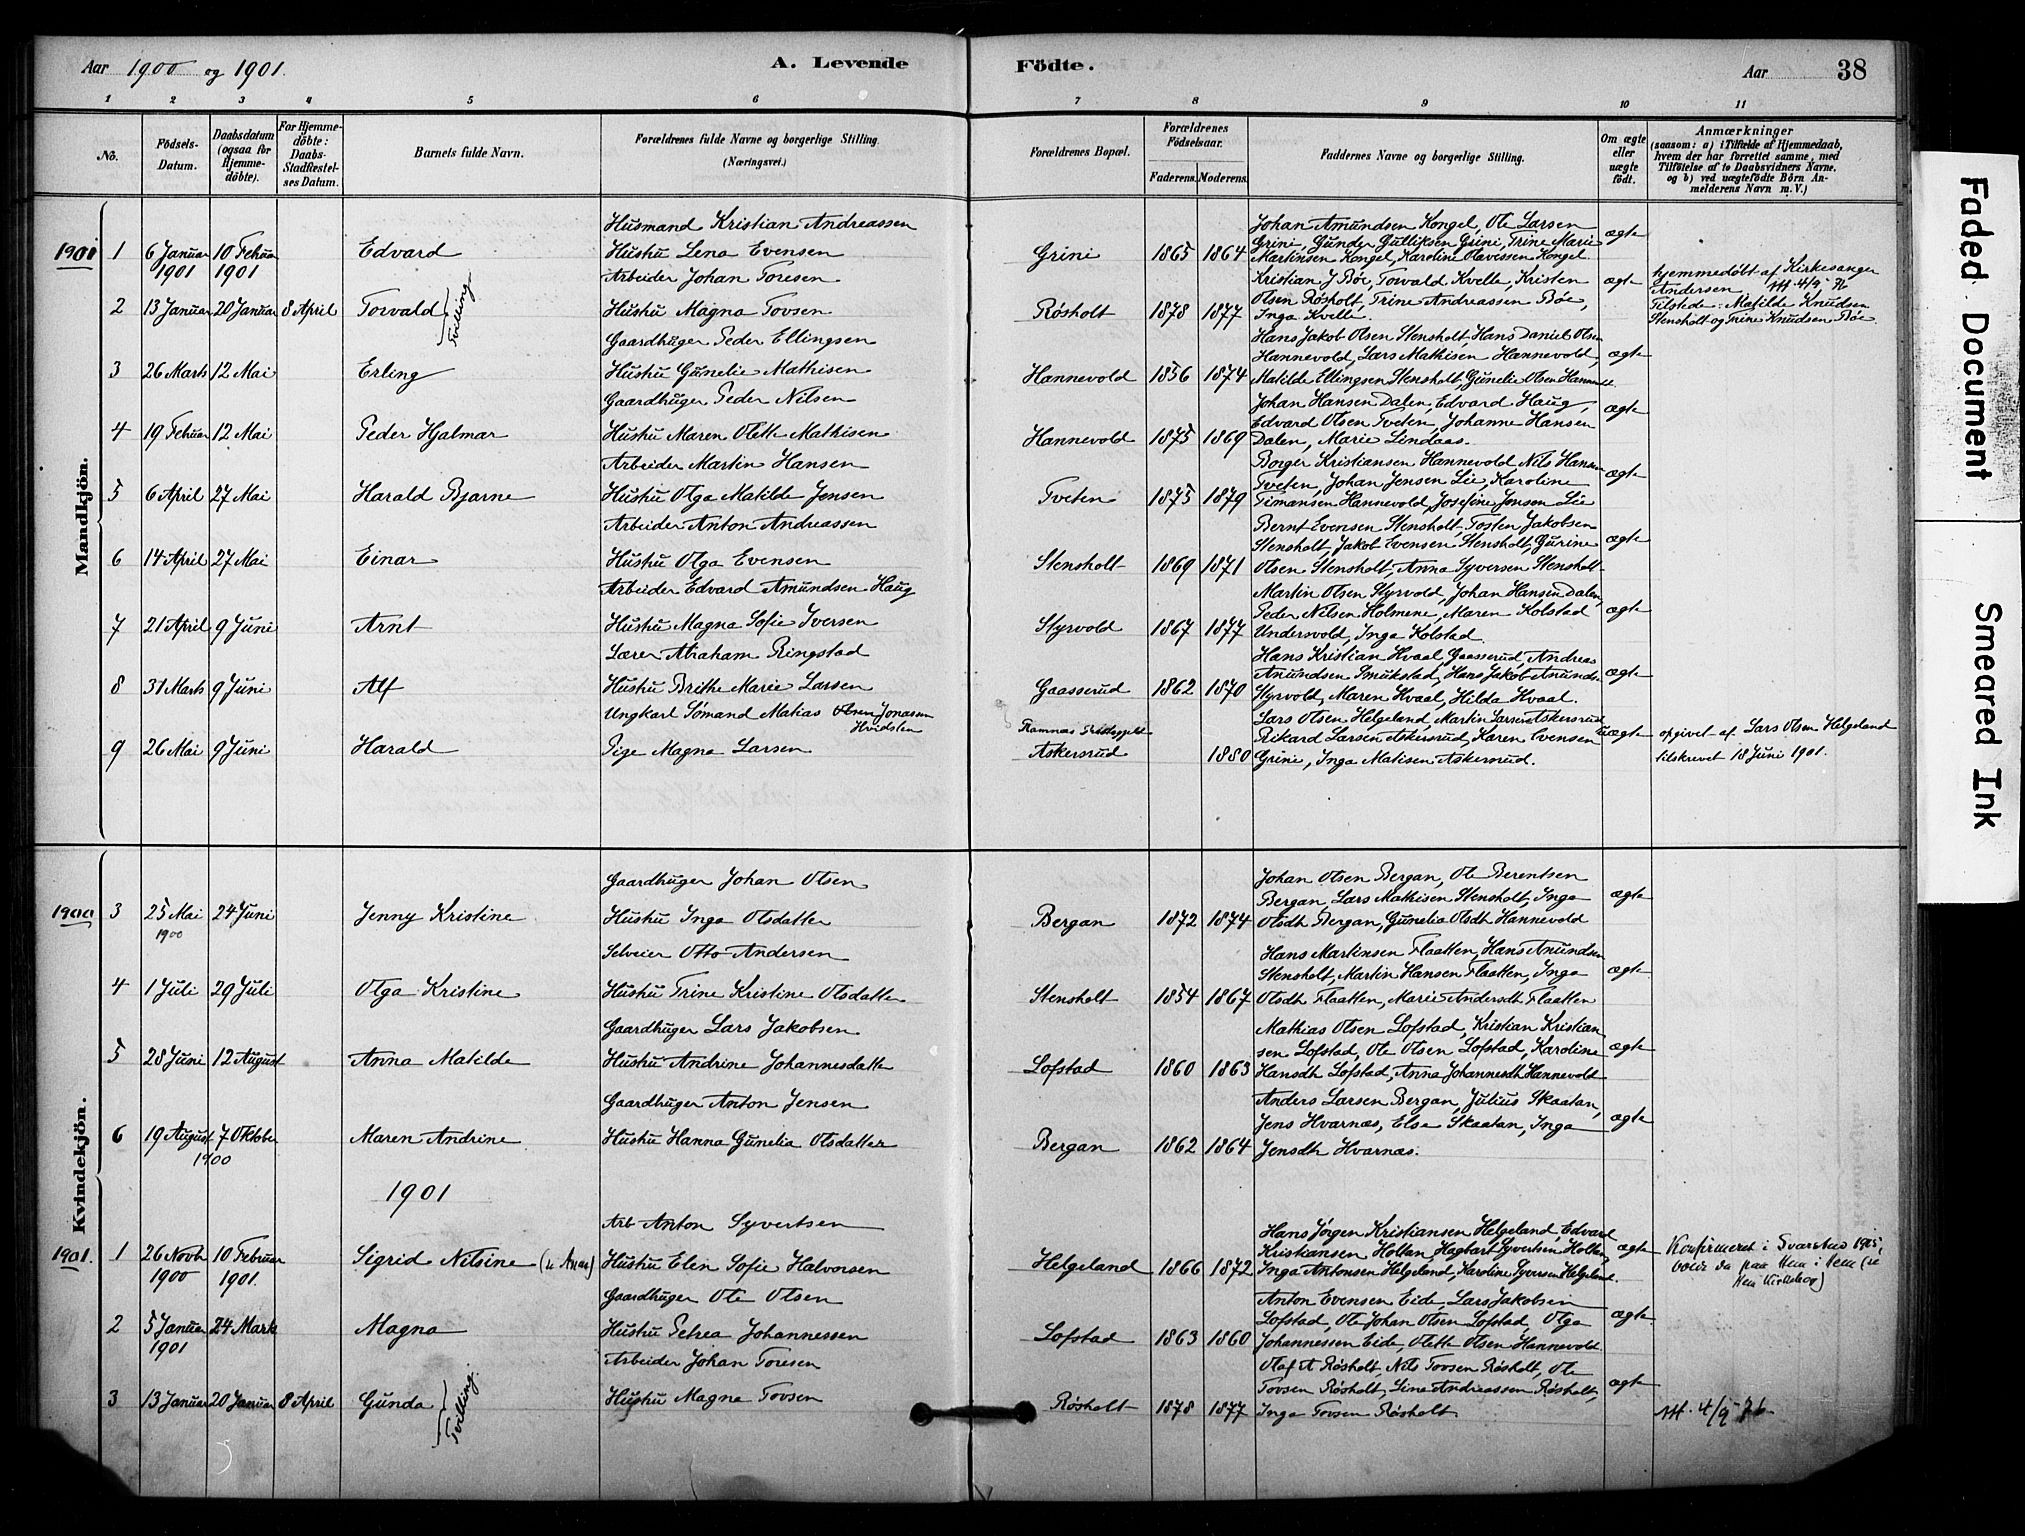 Aar 1900 og 1901.
A. Levende Födte.
Aar 38
1 2 3 4 5 6 7 8 9 10 11
No.
Födsels-Datum.
Daabsdatum (ogsaa for Hjemme-döbte).
For Hjemme-döbte: Daabs-Stadfæstel-ses Datum.
Barnets fulde Navn.
Forældrenes fulde Navne og borgerlige Stilling.
(Næringsvei.)
Forældrenes Bopæl.
Forældrenes Födselsaar.
Faderens. Moderens.
Faddernes Navne og borgerlige Stilling.
Om ægte eller uægte födt.
Anmærkninger
(saasom: a) i Tilfælde af Hjemmedaab, hvem der har forrettet samme, med Tilföielse af to Daabsvidners Navne, og b) ved uægtefödte Börn An-melderens Navn m.V.)
Mandkjön.
1901
1 6 Januar 1901 10 Februar 1901 Edvard
Husmand Kristian Andreassen
Hustru Lena Evensen
Grini 1865 1864
Johan Amundsen Kongel, Ole Larsen
Grini, Gunder Gulliksen Grini, Trine Marie
Martinsen Kongel, Karoline Olavessen Kongel
ægte
2 13 Januar 20 Januar 8 April Torvald Tvilling
Arbeider Johan Toresen
Hustru Magna Tovsen
Røsholt 1878 1877
Kristian J Bøe, Torvald Kvelle, Kristen
Olsen Røsholt, Trine Andreassen Bøe,
Inga Kvelle.
ægte
hjemmedøbt af Kirkesanger
Andersen
Tilstede: Matilde Knudsen
Stensholt og Trine Knudsen Bøe
3 26 Marts 12 Mai Erling
Gaardbruger Peder Ellingsen
Hustru Gunelie Mathisen
Hannevold 1856 1874
Hans Jakob Olsen Stensholt, Hans Daniel Olsen
Hannevold, Lars Mathisen Hannevold,
Matilde Ellingsen Stensholt, Gunelie Olsen
ægte
4 19 Februar 12 Mai Peder Hjalmar
Gaardbruger Peder Nilsen
Hustru Maren Olette Mathisen
Hannevold 1875 1869
Johan Hansen Dalen, Edvard Haug,
Edvard Olsen Tveten, Johanne Hansen
Dalen, Marie Lindaas.
ægte
5 6 April 27 Mai Harald Bjarne
Arbeider Martin Hansen
Hustru Olga Matilde Jensen
Tveten 1875 1879
Borger Kristiansen Hannevold, Nils Hansen
Tveten, Johan Jensen Lie, Karoline
Timansen Hannevold, Josefine Jensen Lie
ægte
6 14 April 27 Mai Einar
Arbeider Anton Andreassen
Hustru Olga Evensen
Stensholt 1869 1871
Bernt Evensen Stensholt, Tosten Jakobsen
Stensholt, Jakob Evensen Stensholt, Gurine
Olsen Stensholt, Anna Syversen Stensholt
ægte
7 21 April 9 Juni Arnt
Arbeider Edvard Amundsen Haug
Hustru Magna Sofie Iversen
Styrvold 1867 1877
Martin Olsen Styrvold, Johan Hansen Dalen,
Peder Nilsen Holmene, Maren Kolstad
Undersvold, Inga Kolstad.
ægte
8 31 Marts 9 Juni Alf
Lærer Abraham Ringstad
Hustru Brithe Marie Larsen
Gaasserud 1862 1870
Hans Kristian Hvaal, Gaasserud, Andreas
Anundsen Smukstad, Hans Jakob
Styrvold, Maren Hvaal, Hilda Hvaal.
ægte
9 26 Mai 9 Juni Harald
Ungkarl Sømand Matias Olsen Jonasen
Hvidsten
Pige Magna Larsen
Ramnæs Præstegjeld
Askersrud 1880
Lars Olsen Helgeland, Martin Larsen Askersrud
Rikard Larsen Askersrud, Karen Evensen
Grini, Inga Matisen Askersrud.
uægte
opgivet af Lars Olsen Helgeland
tilskrevet 18 Juni 1901.
Kvindekjön.
1900
3 25 Mai 1900 24 Juni Jenny Kristine
Gaardbruger Johan Olsen
Hustru Inga Olsdatter
Bergan 1872 1874
Johan Olsen Bergan, Ole Berentsen
Bergan, Lars Mathisen Stensholt, Inga
Olsdtr Bergan, Gunelia Olsdtr Hannevold
ægte
4 1 Juli 29 Juli Olga Kristine
Selveier Otto Andersen
Hustru Trine Kristine Olsdatter
Stensholt 1854 1867
Hans Martinsen Flaatten, Hans Anundsen
Stensholt, Martin Hansen Flaatten, Inga
Olsdtr Flaatten, Marie Andersdtr Flaatten
ægte
5 28 Juni 12 August Anna Matilde
Gaardbruger Lars Jakobsen
Hustru Andrine Johannesdatter
Lofstad 1860 1863
Mathias Olsen Lofstad, Kristian Kristian
sen Lofstad, Ole Olsen Lofstad, Karoline
Hansdtr Lofstad, Anna Johannesdtr Hannevold
ægte
6 19 August 7 Oktober 1900 Maren Andrine
Gaardbruger Anton Jensen
Hustru Hanna Gunelia Olsdatter
Bergan 1862 1864
Anders Larsen Bergan, Julius Skaatan,
Jens Hvarnæs, Else Skaatan, Inga
Jensdtr Hvarnæs.
ægte
1901
1901.
1 26 Novb 1900 10 Februar 1901. Sigrid Nilsine
Arb Anton Syvertsen
Hustru Elen Sofie Halvorsen
Helgeland 1866 1872
Hans Jørgen Kristiansen Helgeland, Edvard
Kristiansen Holtan, Hagbart Syvertsen Holtan,
Inga Antonsen Helgeland, Karoline Syversen Helgeland.
ægte
Konfirmeret i Svarstad 1915,
boede da paa Hem i Hem (se
Hem Kirkebog)
2 5 Januar 1901 24 Mars Magna
Gaardbruger Ole Olsen
Hustru Petrea Johannessen
Lofstad 1863 1860
Anton Evensen Eide, Lars Jakobsen
Lofstad, Ole Johan Olsen Lofstad, Olga
Johannessen Eide, Olette Olsen Hannevold.
ægte
3 13 Januar 20 Januar 8 April Gunda Tvilling.
Arbeider Johan Toresen
Hustru Magna Tovsen
Røsholt 1878 1877
Olaf A Røsholt, Nils Tovsen Røsholt, Ole
Tovsen Røsholt, Lina Andreassen Røsholt,
Inga Tovsen Røsholt.
ægte
4/9-76
Faded Document
Smeared Ink